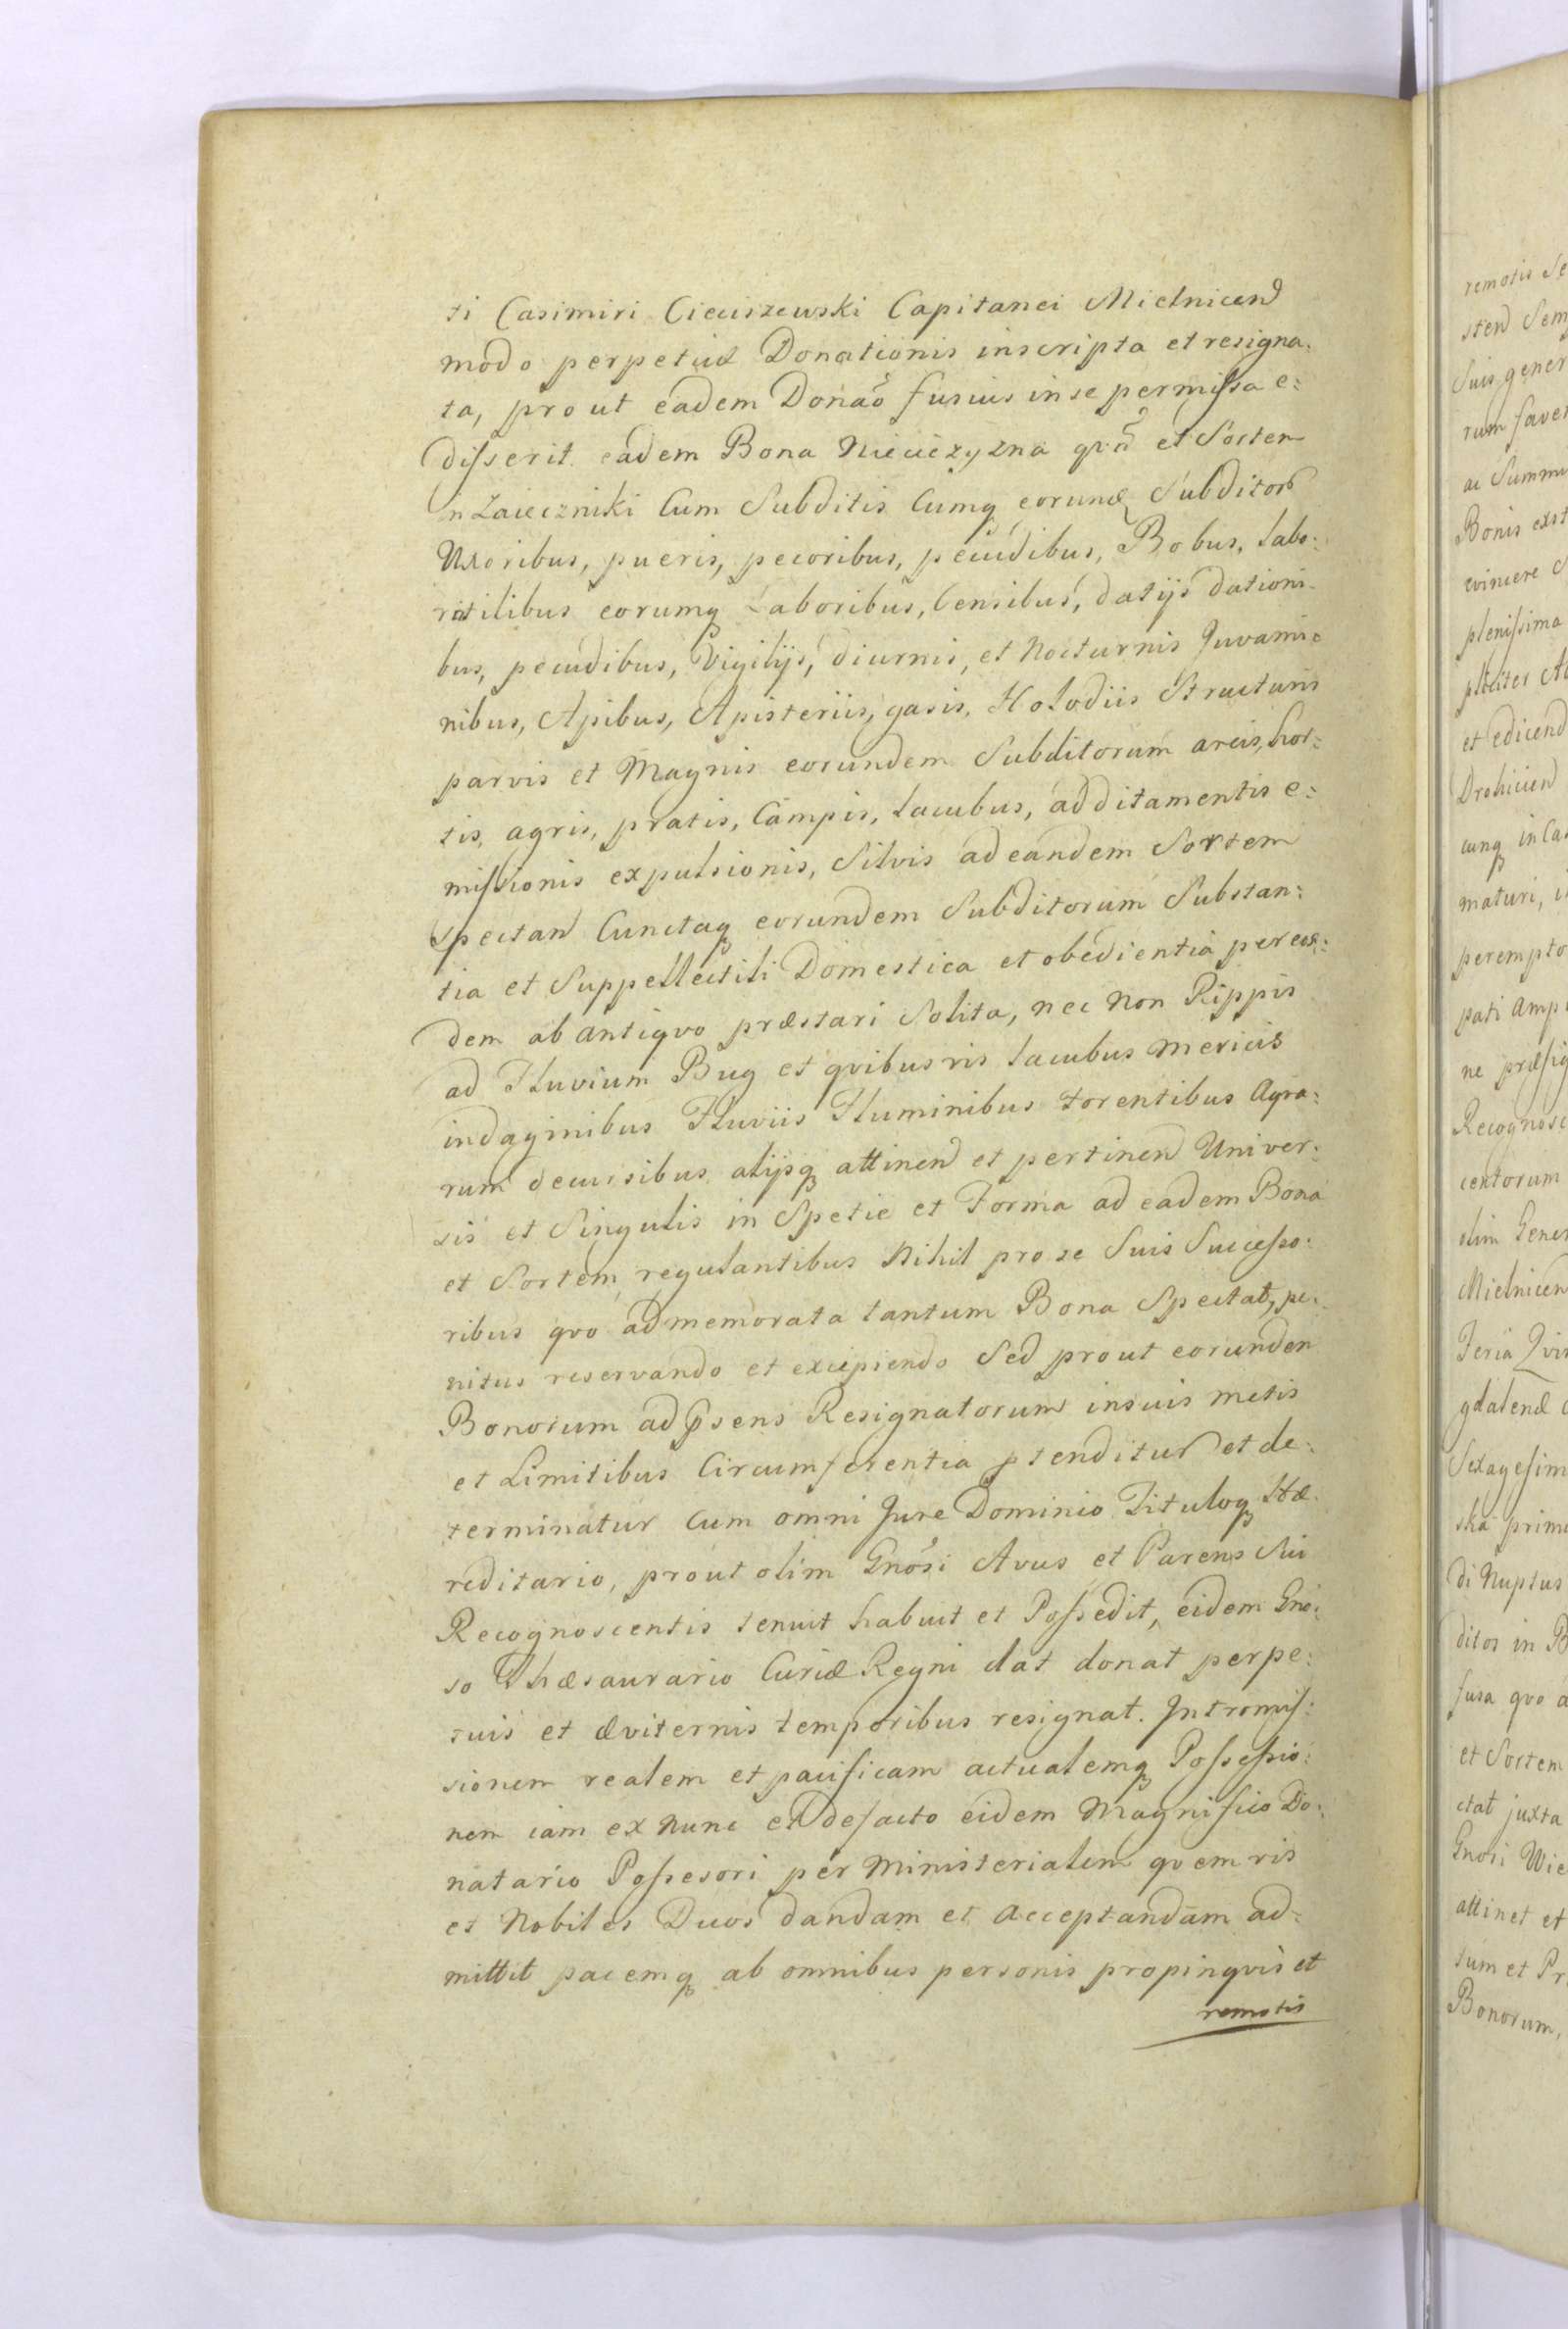 ti Casimiri Cieciszewski Capitanei Mielnicen
modo perpetuæ Donationis inscripta et resigna:
ta, prout eadem Donaõ fusius in se permissa e:
disserit eadem Bona Niecieczyzna qvã et Sortem
in Zaieczniki Cum Subditis Cumq eorund Subditor
Uxoribus, pueris, pecoribus, pecudibus, Bobus, labo:
ratilibus eorumq Laboribus, Censibus, datijs dationi:
bus, pecudibus, Vigilijs, diurnis, et Nocturnis Juvami:
nibus, Apibus, Apisteriis, gasis, Holodiis Structuris
parvis et Magnis eorundem Subditorum areis, hor:
tis, agris, pratis, Campis, lacubus, additamentis e:
missionis expulsionis, Silvis ad eandem Sortem
Spectan Cunctaq eorundem Subditorum Substan:
tia et Suppellectili Domestica et obedientia per eos:
dem ab antiqvo præstari Solita, nec non Rippis
ad Fluvium Bug et qvibusvis lacubus Mericis
indaginibus Fluviis Fluminibus torentibus Agro:
rum decursibus alijsq attinen et pertinen Univer:
sis et Singulis in Spetie et Forma ad eadem Bona
et Sortem regulantibus Nihil pro se Suis Successo:
ribus qvo ad memorata tantum Bona Spectat, pe:
nitus reservando et excipiendo Sed prout eorundem
Bonorum ad psens Resignatorum in suis metis
et Limitibus Circumferentia ptenditur et de:
terminatur Cum omni Jure Dominio Tituloq Hæ:
reditario, prout olim Gnosi Avus et Parens Sui
Recognoscentis tenuit habuit et Possedit, eidem Gno:
so Thæsaurario Curiæ Regni dat donat perpe:
tuis et æviternis temporibus resignat. Intromis:
sionem realem et pacificam actualemq Possessio:
nem iam ex nunc et defacto eidem Magnifico Do:
natario Possesori per Ministerialem qvemvis
et Nobiles Duos dandam et acceptandam ad:
mittit pacemq ab omnibus personis propinqvis et
remotis
remotis Se
sten Sem
Suis gener
rum faver
ac Summa
Bonis exst
evincere
plenissima
et edicend
Drohicien
cunq in Cas
maturi, i
perempto
pati amp
ne præfig
Recognosc
centorum
olim Gener
Mielnicen
Feria Qvin
gdalenæ
Sexagesim
ska primi
di Nuptus
ditos in B
fusa qvo a
et Sortem
ctat juxta
Gnosi Wie
attinet et
tum et Pr
Bonorum,